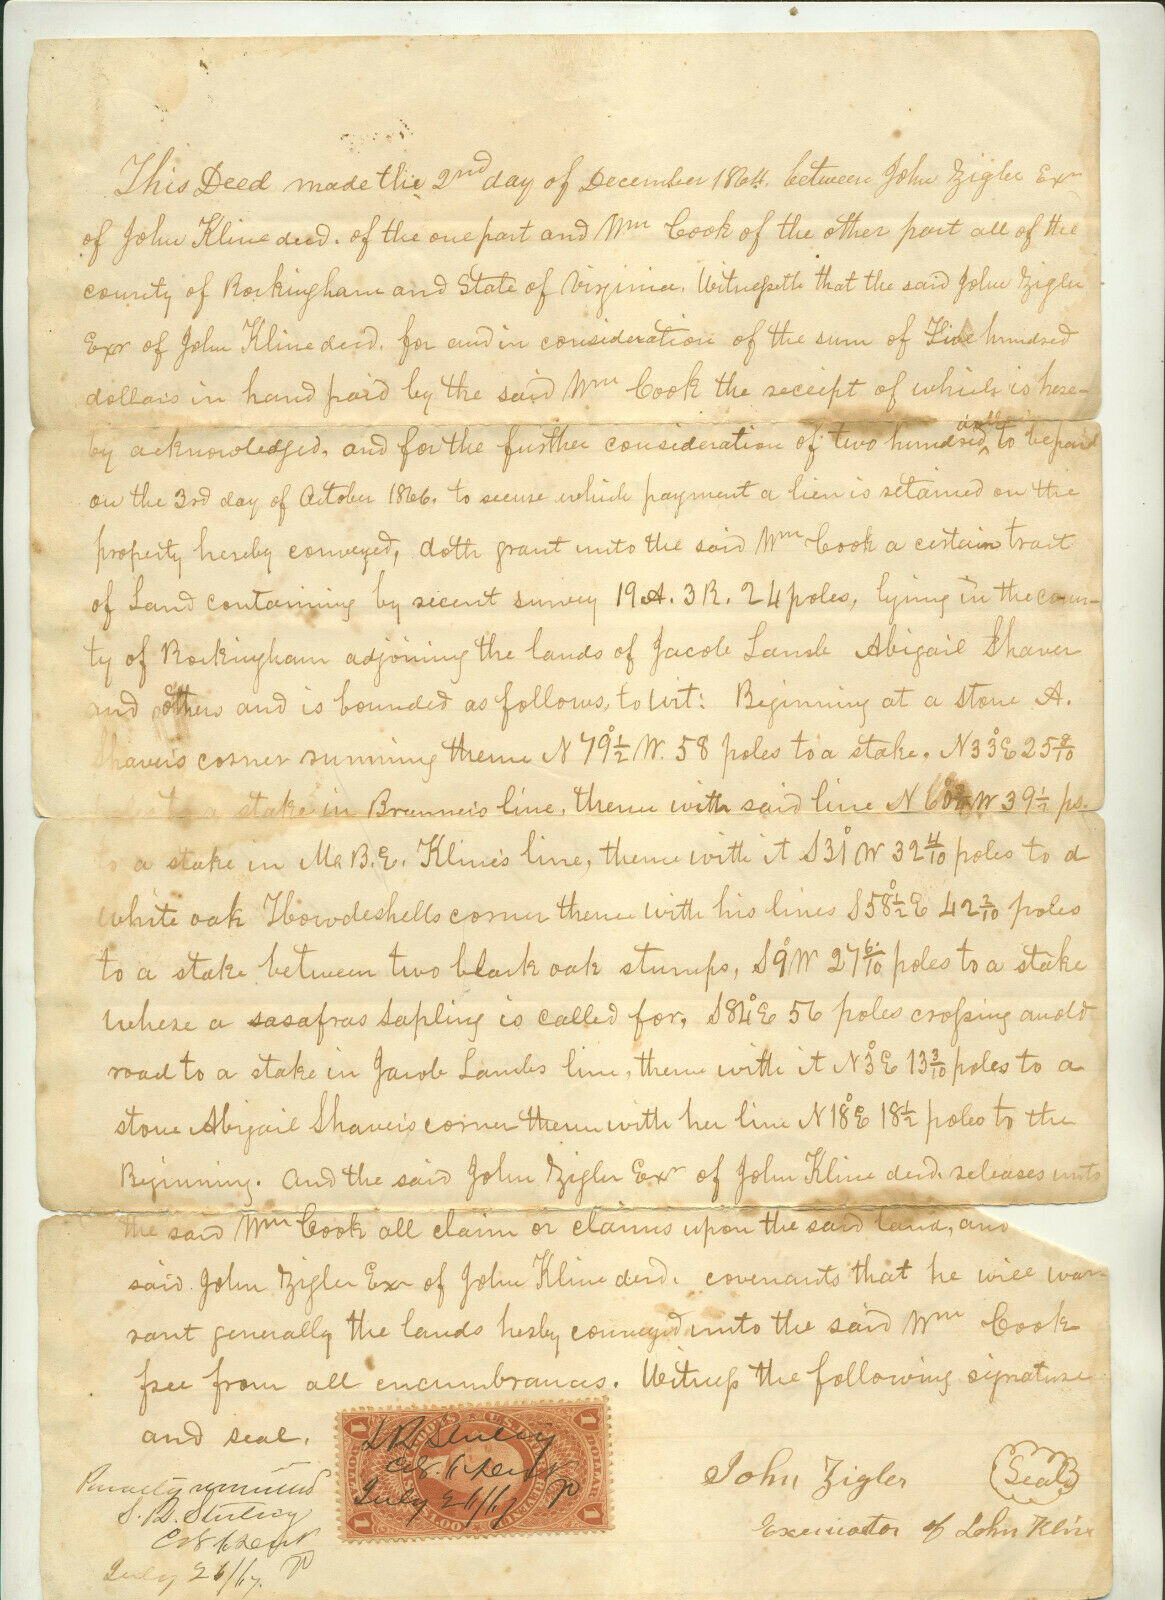 This Deed made the 2nd day of December 1864. between John Zigler Exr
of John Kline decd. of the one part and Wm Cook of the other part all of the
county of Rockingham and State of Virginia. Witnesseth that the said John Zigler
Exr of John Kline decd. for and in consideration of the sum of Five hundred
dollars in hand paid by the said Wm Cook the receipt of which is here-
by acknowledged, and for the further consideration of two hundred, to be paid
on the 3rd day of October 1866. to secure which payment a lien is retained on the
property hereby conveyed, doth grant unto the said Wm Cook a certain tract
of Land containing by recent survey 19 A. 3 R. 24 poles, lying in the coun-
ty of Rockingham adjoining the lands of Jacob Lamb Abigail Shaver
and others and is bounded as follows, to wit: Beginning at a stone A.
Shaver's corner running thence N 79½° W. 58 poles to a stake. N 33° E 25 8/10
to a stake in Brunner's line, thence with said line N W 39½ ps.
to a stake in B. E. Kline's line, thence with it S 31° W 32 4/10 poles to a
white oak Howdeshells corner thence with his lines S 58½° E 42 3/10 poles
to a stake between two black oak stumps, S 9° W 27 6/10 poles to a stake
where a sasafras sapling is called for. S 84° E 56 poles crossing an old
road to a stake in Jacob Lambs line, thence with it N 3° E 13 3/10 poles to a
stone Abigail Shaver's corner thence with her line N 18° E 18½ poles to the
Beginning. And the said John Zigler Exr of John Kline decd. releases unto
the said Wm Cook all claim or claims upon the said land, and
said John Zigler Exr of John Kline decd. covenants that he will war-
rant generally the lands hereby conveyed unto the said Wm Cook
free from all encumbrances. Witness the following signature
and seal.
John Zigler Seal
Executor of John Kline
July 26/67
July 26/67.
1 1 1 1